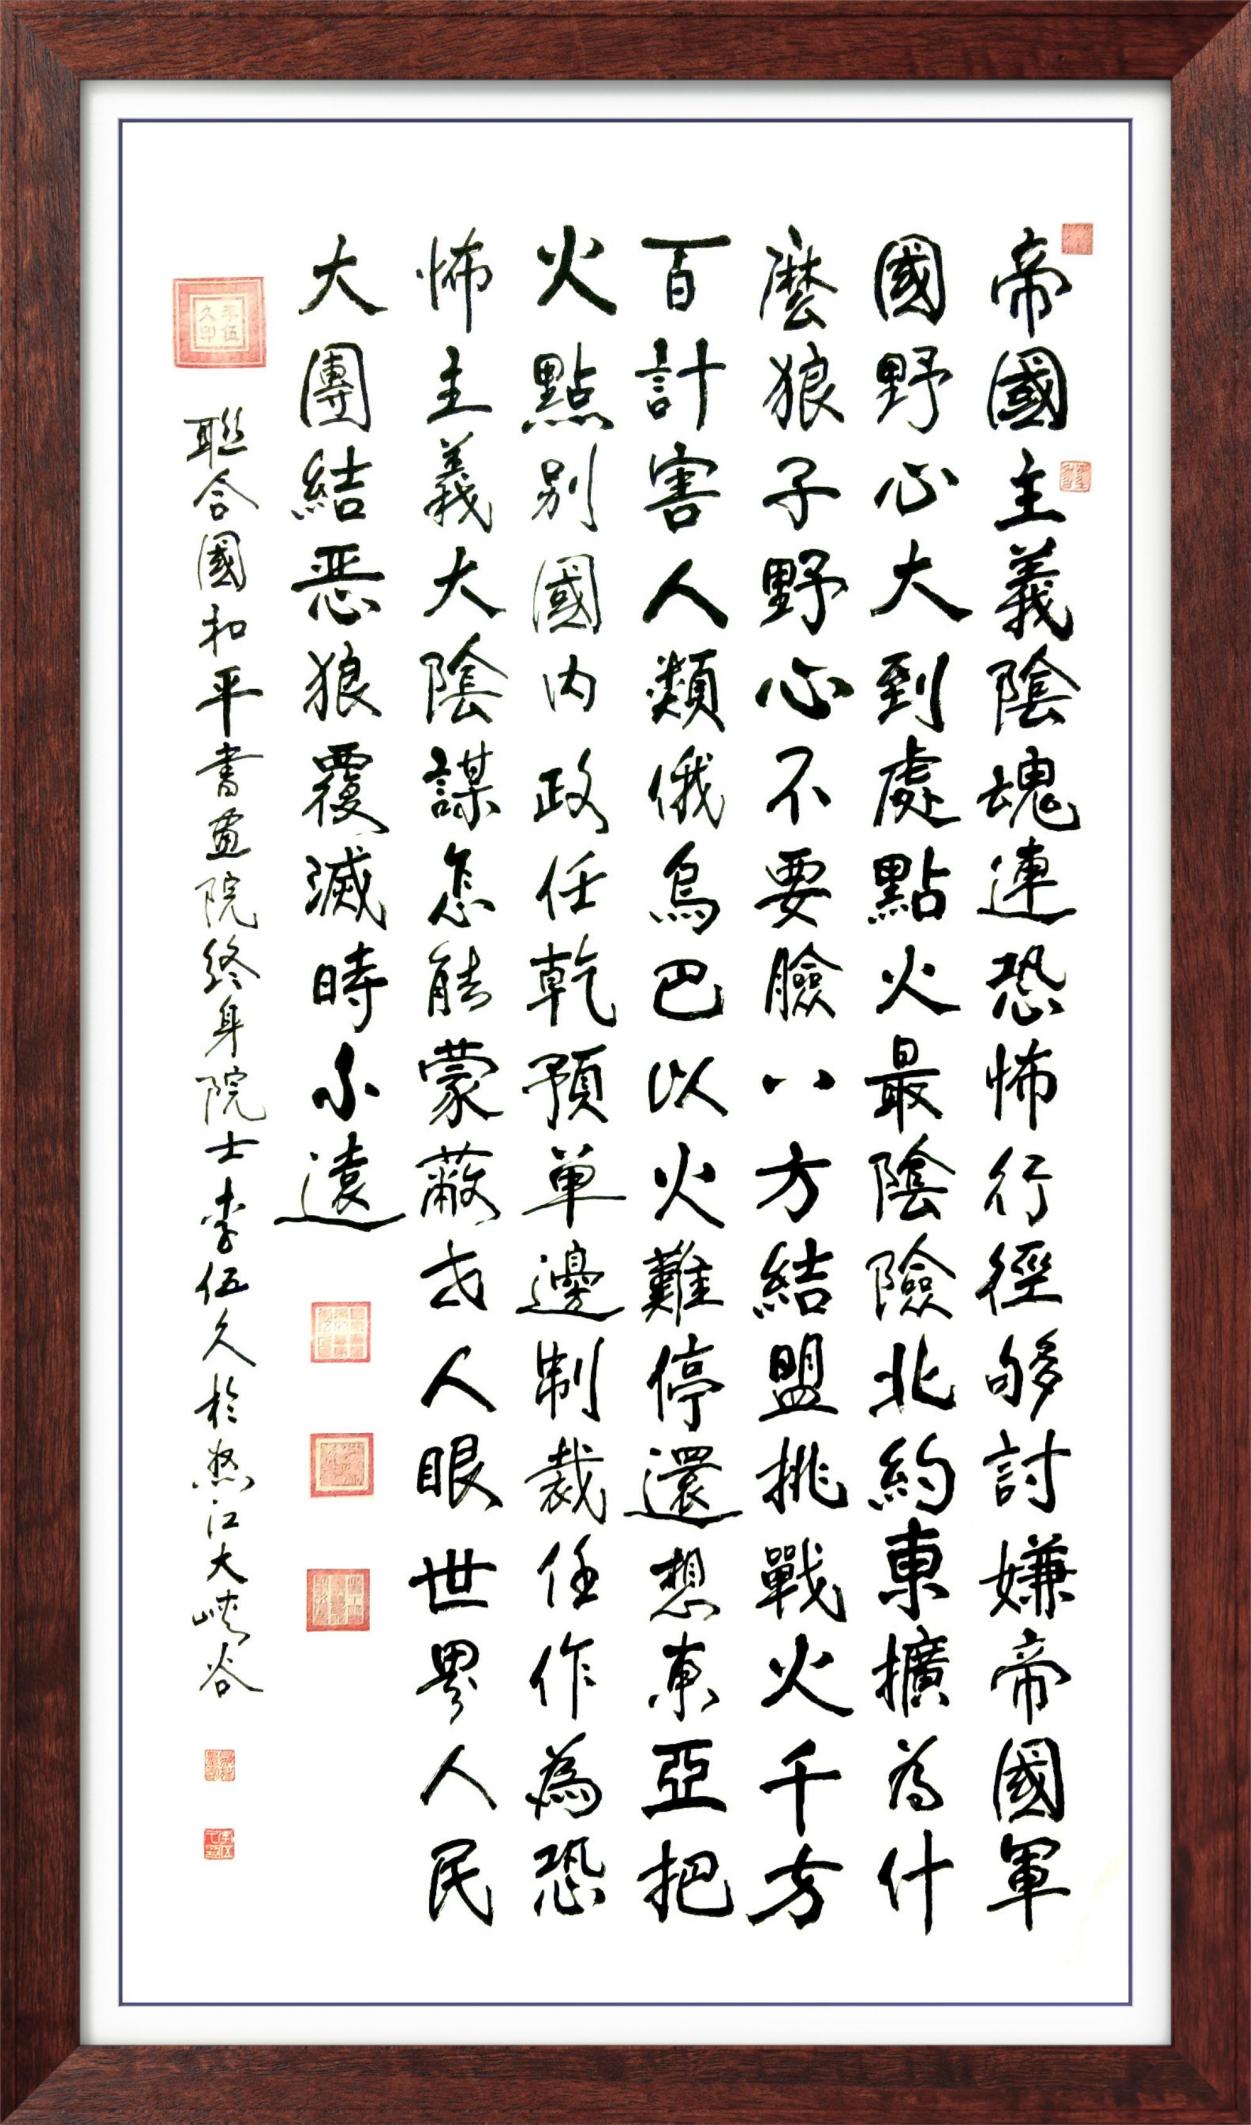 帝國主義陰魂連恐怖行徑够討嫌帝國軍
國野心大到處點火最陰險北約東擴為什
麼狼子野心不要臉八方結盟挑戰火千方
百計害人類俄烏巴以火難停還想東亞把
火點别國内政任乾預單邊制裁任作為恐
怖主義大陰謀怎能蒙蔽世人眼世界人民
大團結恶狼覆滅時不遠
聯合國和平書畫院终身院士李伍久於怒江大峽谷
李伍久印